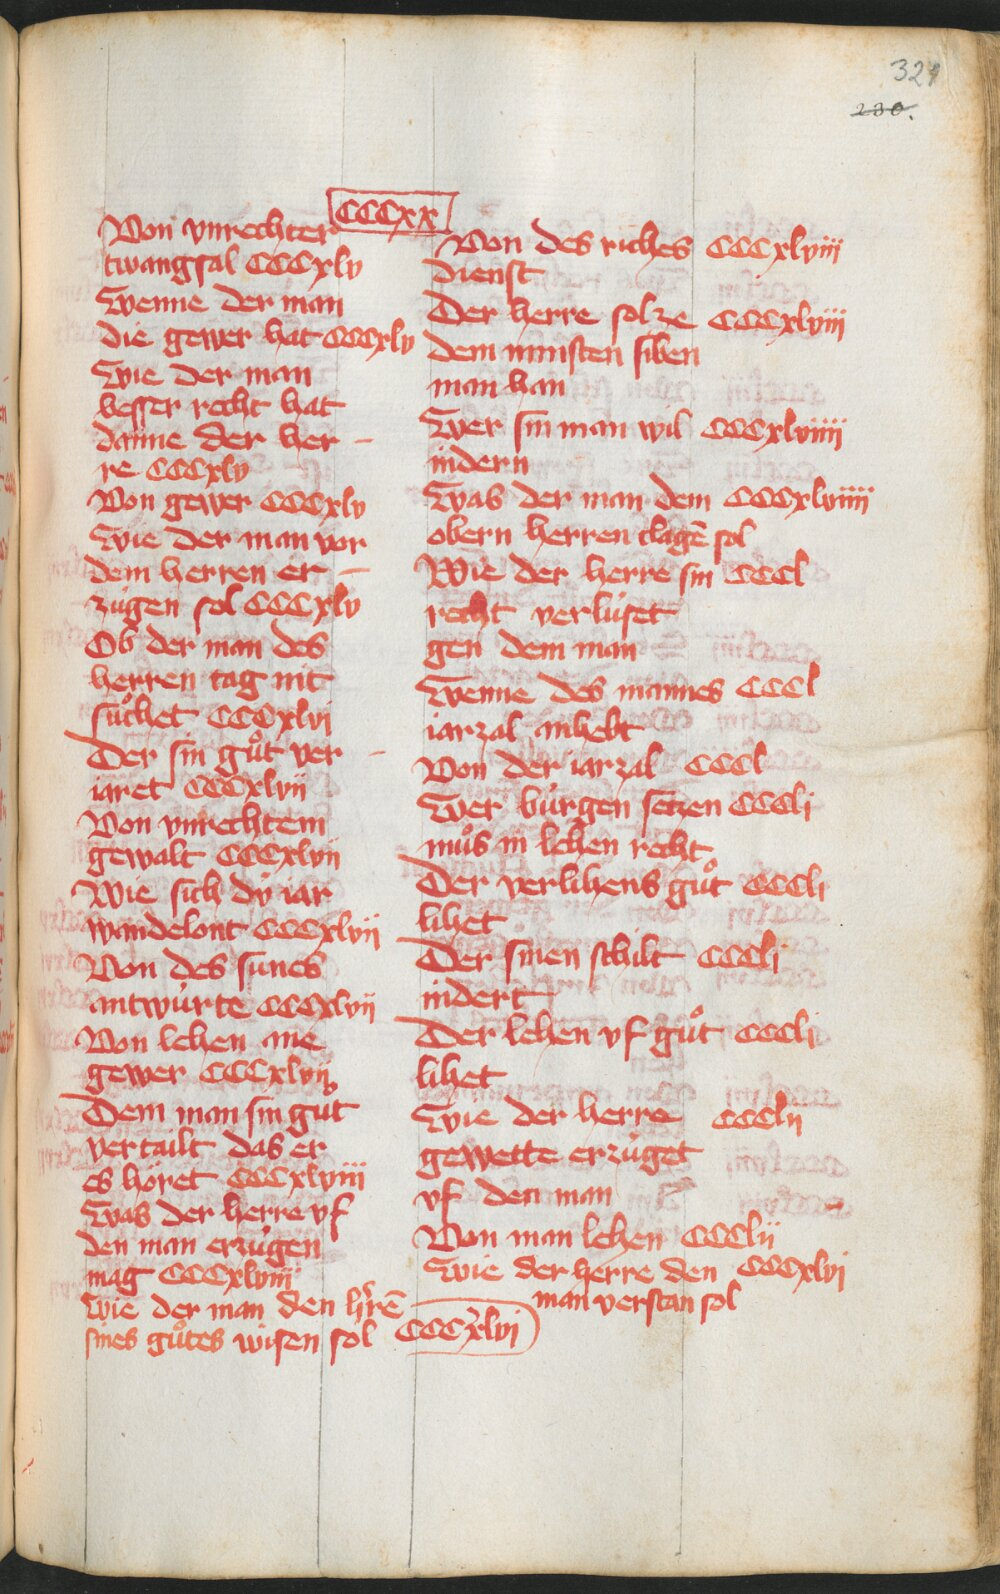 321
230.
CCCxx
Von vnrechter
twangsal CCCxlv
Wenne der man
die gewer hat CCCxlv
Wie der man
besser recht hat
danne der her -
re CCCxlv
Von gewer CCCxlv
Wie der man vor
dem herren er -
zúgen sol CCCxlv
Ob der man des
herren tag nit
sůchet CCCxlvi
Der sin gůt ver -
iaret CCCxlvii
Von vnrechtem
gewalt CCCxlvii
Wie sich dú iar
wandelont CCCxlvii
Von des sunes
antwúrte CCCxlvii
Von lehen ane
gewer CCCxlvii
Dem man sin gut
vertailt das er
es höret CCCxlviii
Was der herre vf
den man erzúgen
mag CCCxlviii
Wie der man den h̄rē
sines gůtes wisen sol CCCxlvi
Von des riches CCCxlviii
dienst
Der herre sol ze CCCxlviii
dem minsten siben
man han
Wer sin man wil CCCxlviiii
indern
Was der man dem CCCxlviiii
obern herren clagē sol
Wie der herre sin CCCl
recht verlúset
gen dem man
Wenne des mannes CCCl
iarzal anhebt
Von der iarzal CCCl
Wer búrgen setzen CCCli
můs in lehen recht
Der verlihens gůt CCCli
lihet
Der sinen schilt CCCli
indert
Der lehen vf gůt CCCli
lihet
Wie der herre CCClii
gewette erzúget
vf den man
Von man lehen CCClii
Wie der herre den CCCxlvi
man verstan sol